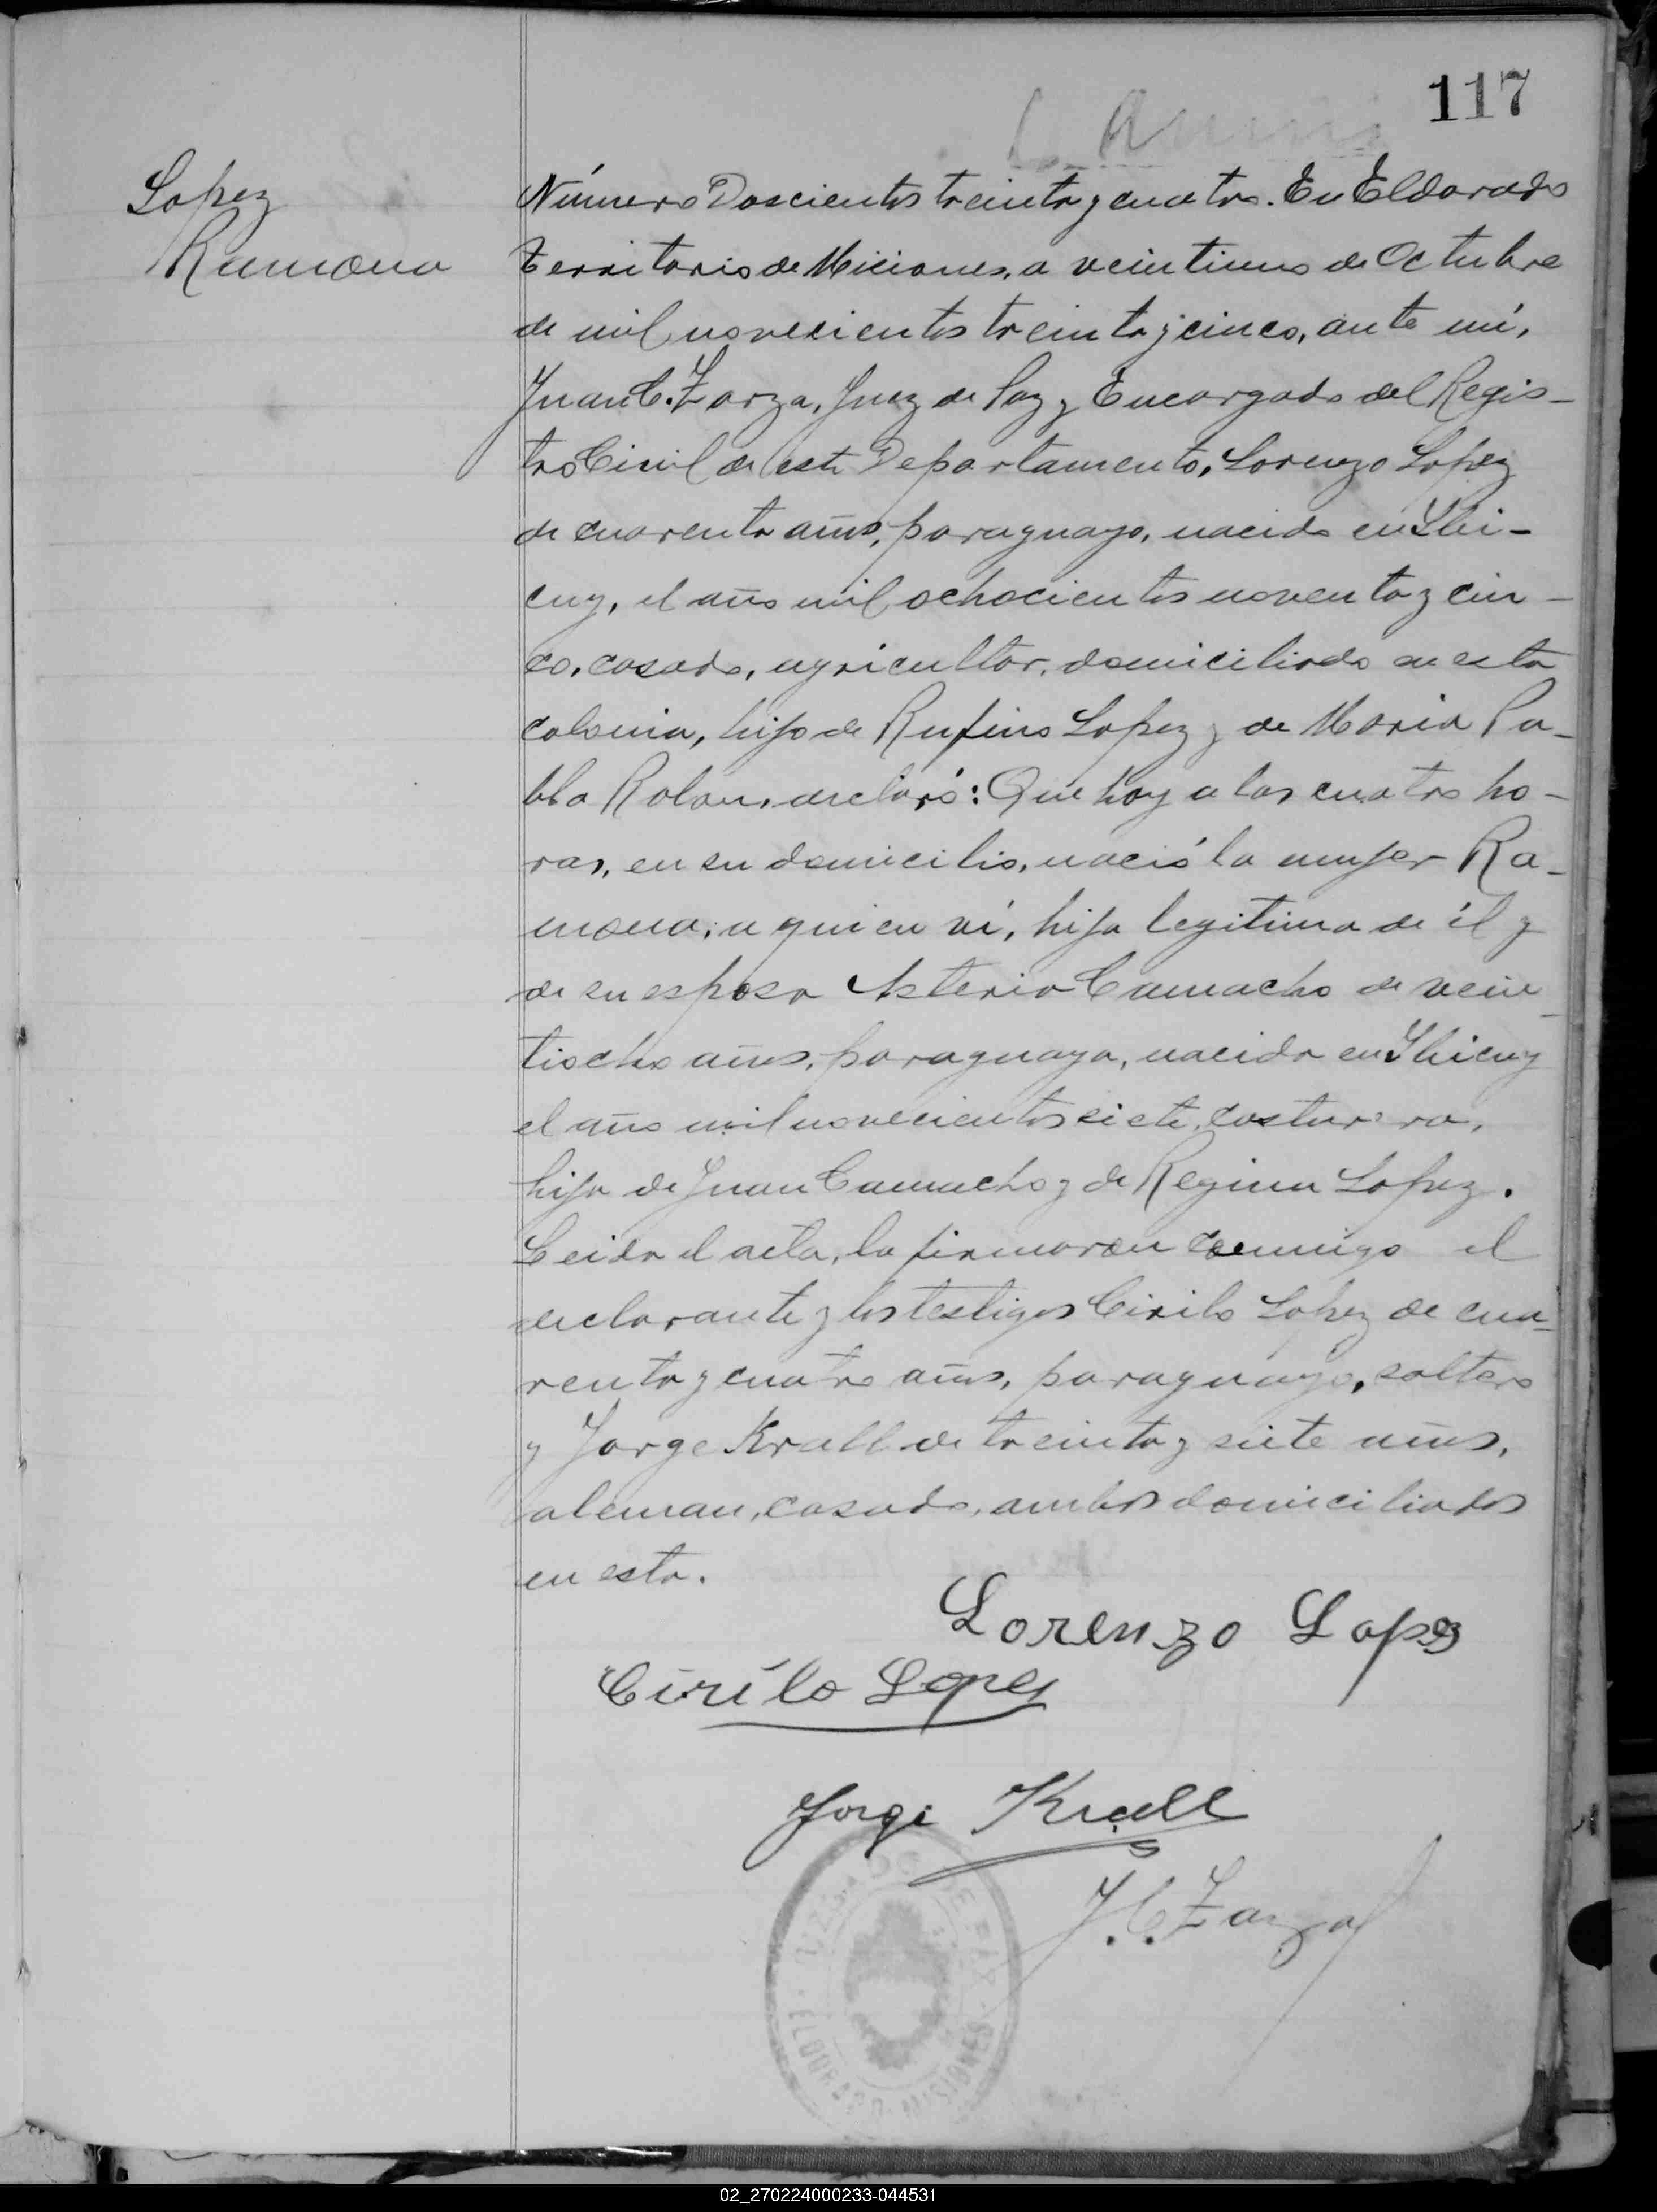 117
Lopez
Ramona
Número Doscientos treinta y cuatro. En Eldorado
territorio de Miciones, a veintiuno de Octubre
de mil novecientos treinta y cinco, ante mí,
Juan C. Zarza, Juez de Paz y Encargado del Regis-
tro Civil de este Departamento, Lorenzo Lopez
de cuarenta años, paraguayo, nacido en Ybi-
cuy, el año mil ochocientos noventa y cin-
co, casado, agricultor, domiciliado en esta
colonia, hijo de Rufino Lopez y de Maria Pa-
bla Rolon, declaró: Que hoy a las cuatro ho-
ras, en su domicilio, nació la mujer Ra-
mona, a quien ví, hija legitima de él y
de su esposa Asteria Camacho de vein-
tiocho años, paraguaya, nacida en Ybicuy
el año mil novecientos siete, costurera,
hija de Juan Camacho y de Regina Lopez.
Leida el acta, la firmaron conmigo el
declarante y los testigos Cirilo Lopez de cua-
renta y cuatro años, paraguayo, soltero
y Jorge Krall de treinta y siete años,
aleman, casado, ambos domiciliados
en esta.
Lorenzo Lopez
Cirílo Lopez
Jorge Krall
J. C. Zarza
JUZGADO DE PAZ
ELDORADO - MISIONES
02_270224000233-044531